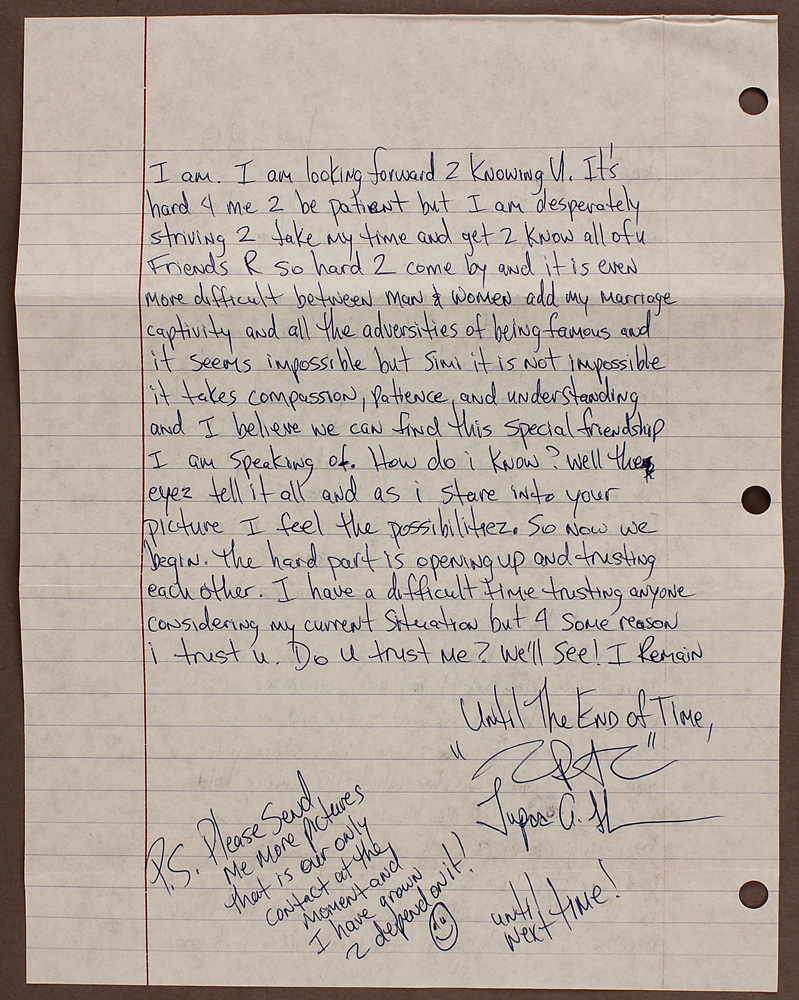 I am. I am looking forward 2 Knowing U. It's
hard 4 me 2 be patient but I am desperately
striving 2 take my time and get 2 know all of u
Friends R so hard 2 come by and it is even
more difficult between man & women add my marriage
captivity and all the adversities of being famous and
it seems impossible but Simi it is not impossible
it takes compassion, patience, and understanding
and I believe we can find this special friendship
I am speaking of. How do i know? Well the
eyez tell it all and as i stare into your
picture I feel the possibilitiez. So now we
begin. the hard part is opening up and trusting
each other. I have a difficult time trusting anyone
considering my current situation but 4 some reason
i trust u. Do u trust me? We'll see! I Remain
Until The End of Time,
"2PAC"
Tupac A. Sh
P.S. Please Send
Me More pictures
that is our only
contact at the
moment and
I have grown
2 depend on it!
until
next time!